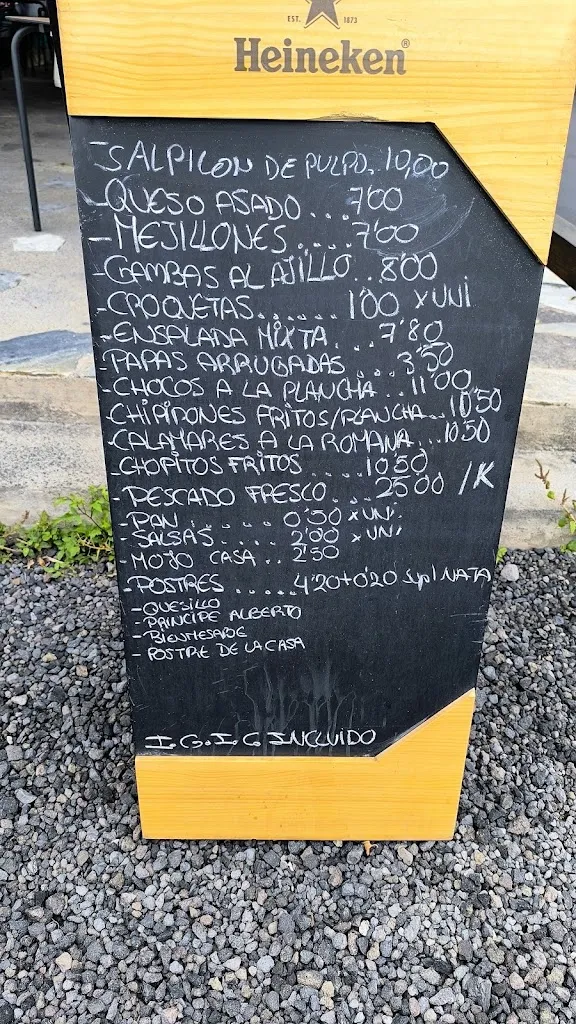 EST. 1873
Heineken®
-SALPICON DE PULPO. 10,00
-QUESO ASADO... 7'00
-MEJILLONES.... 7'00
-GAMBAS AL AJILLO.. 8'00
-CROQUETAS...... 1'00 x UNI
-ENSALADA MIXTA... 7'80
-PAPAS ARRUGADAS... 3'50
-CHOCOS A LA PLANCHA.. 11'00
-CHIPIRONES FRITOS/PLANCHA.. 10'50
-CALAMARES A LA ROMANA... 10'50
-CHOPITOS FRITOS.... 10'50
-PESCADO FRESCO... 25'00 /K
-PAN...... 0'50 x UNI
-SALSAS.... 2'00 x UNI
-MOJO CASA.. 2'50
-POSTRES..... 4'20+0'20 Supl NATA
-QUESILLO
-PRINCIPE ALBERTO
-BIENMESABE
-POSTRE DE LA CASA
I.G.I.C INCLUIDO